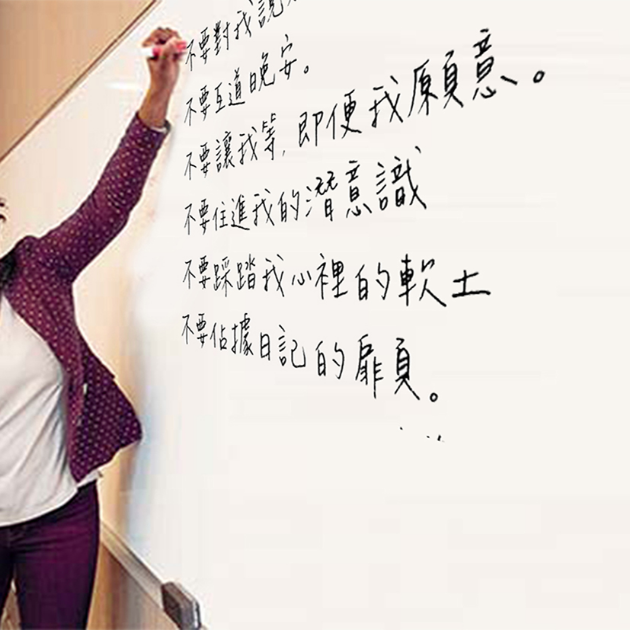 不要對我說
不要互道晚安。
不要讓我等，即便我願意、。
不要住進我的潛意識
不要踩踏我心裡的軟土
不要佔據日記的扉頁。
...